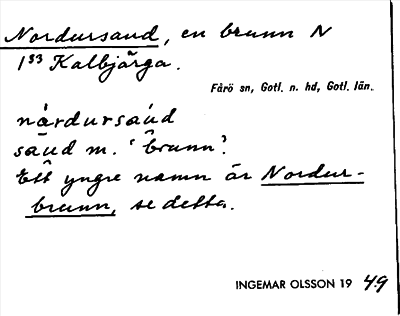 Nordursaud, en brunn N
1³³ Kalbjärga.
Fårö sn, Gotl. n. hd, Gotl. län.
nårdursàu̇d
sāu̇d m. 'brunn'.
Ett yngre namn är Nordur-
brunn, se detta.
INGEMAR OLSSON 19 49